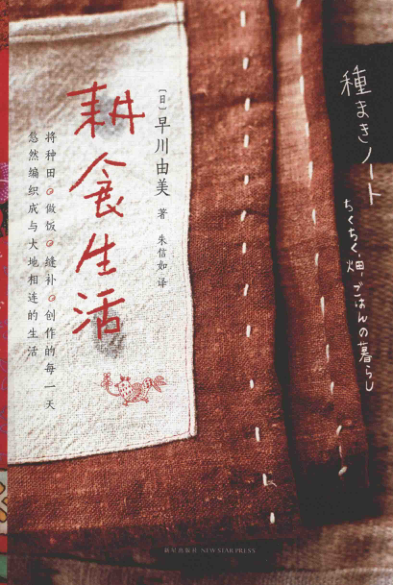 種まきノート
ちくちく、畑、ごはんの暮らし
[日]早川由美 著
朱信如 译
耕食生活
将种田 做饭 缝补 创作的每一天
悠然编织成与大地相连的生活
新星出版社 NEW STAR PRESS